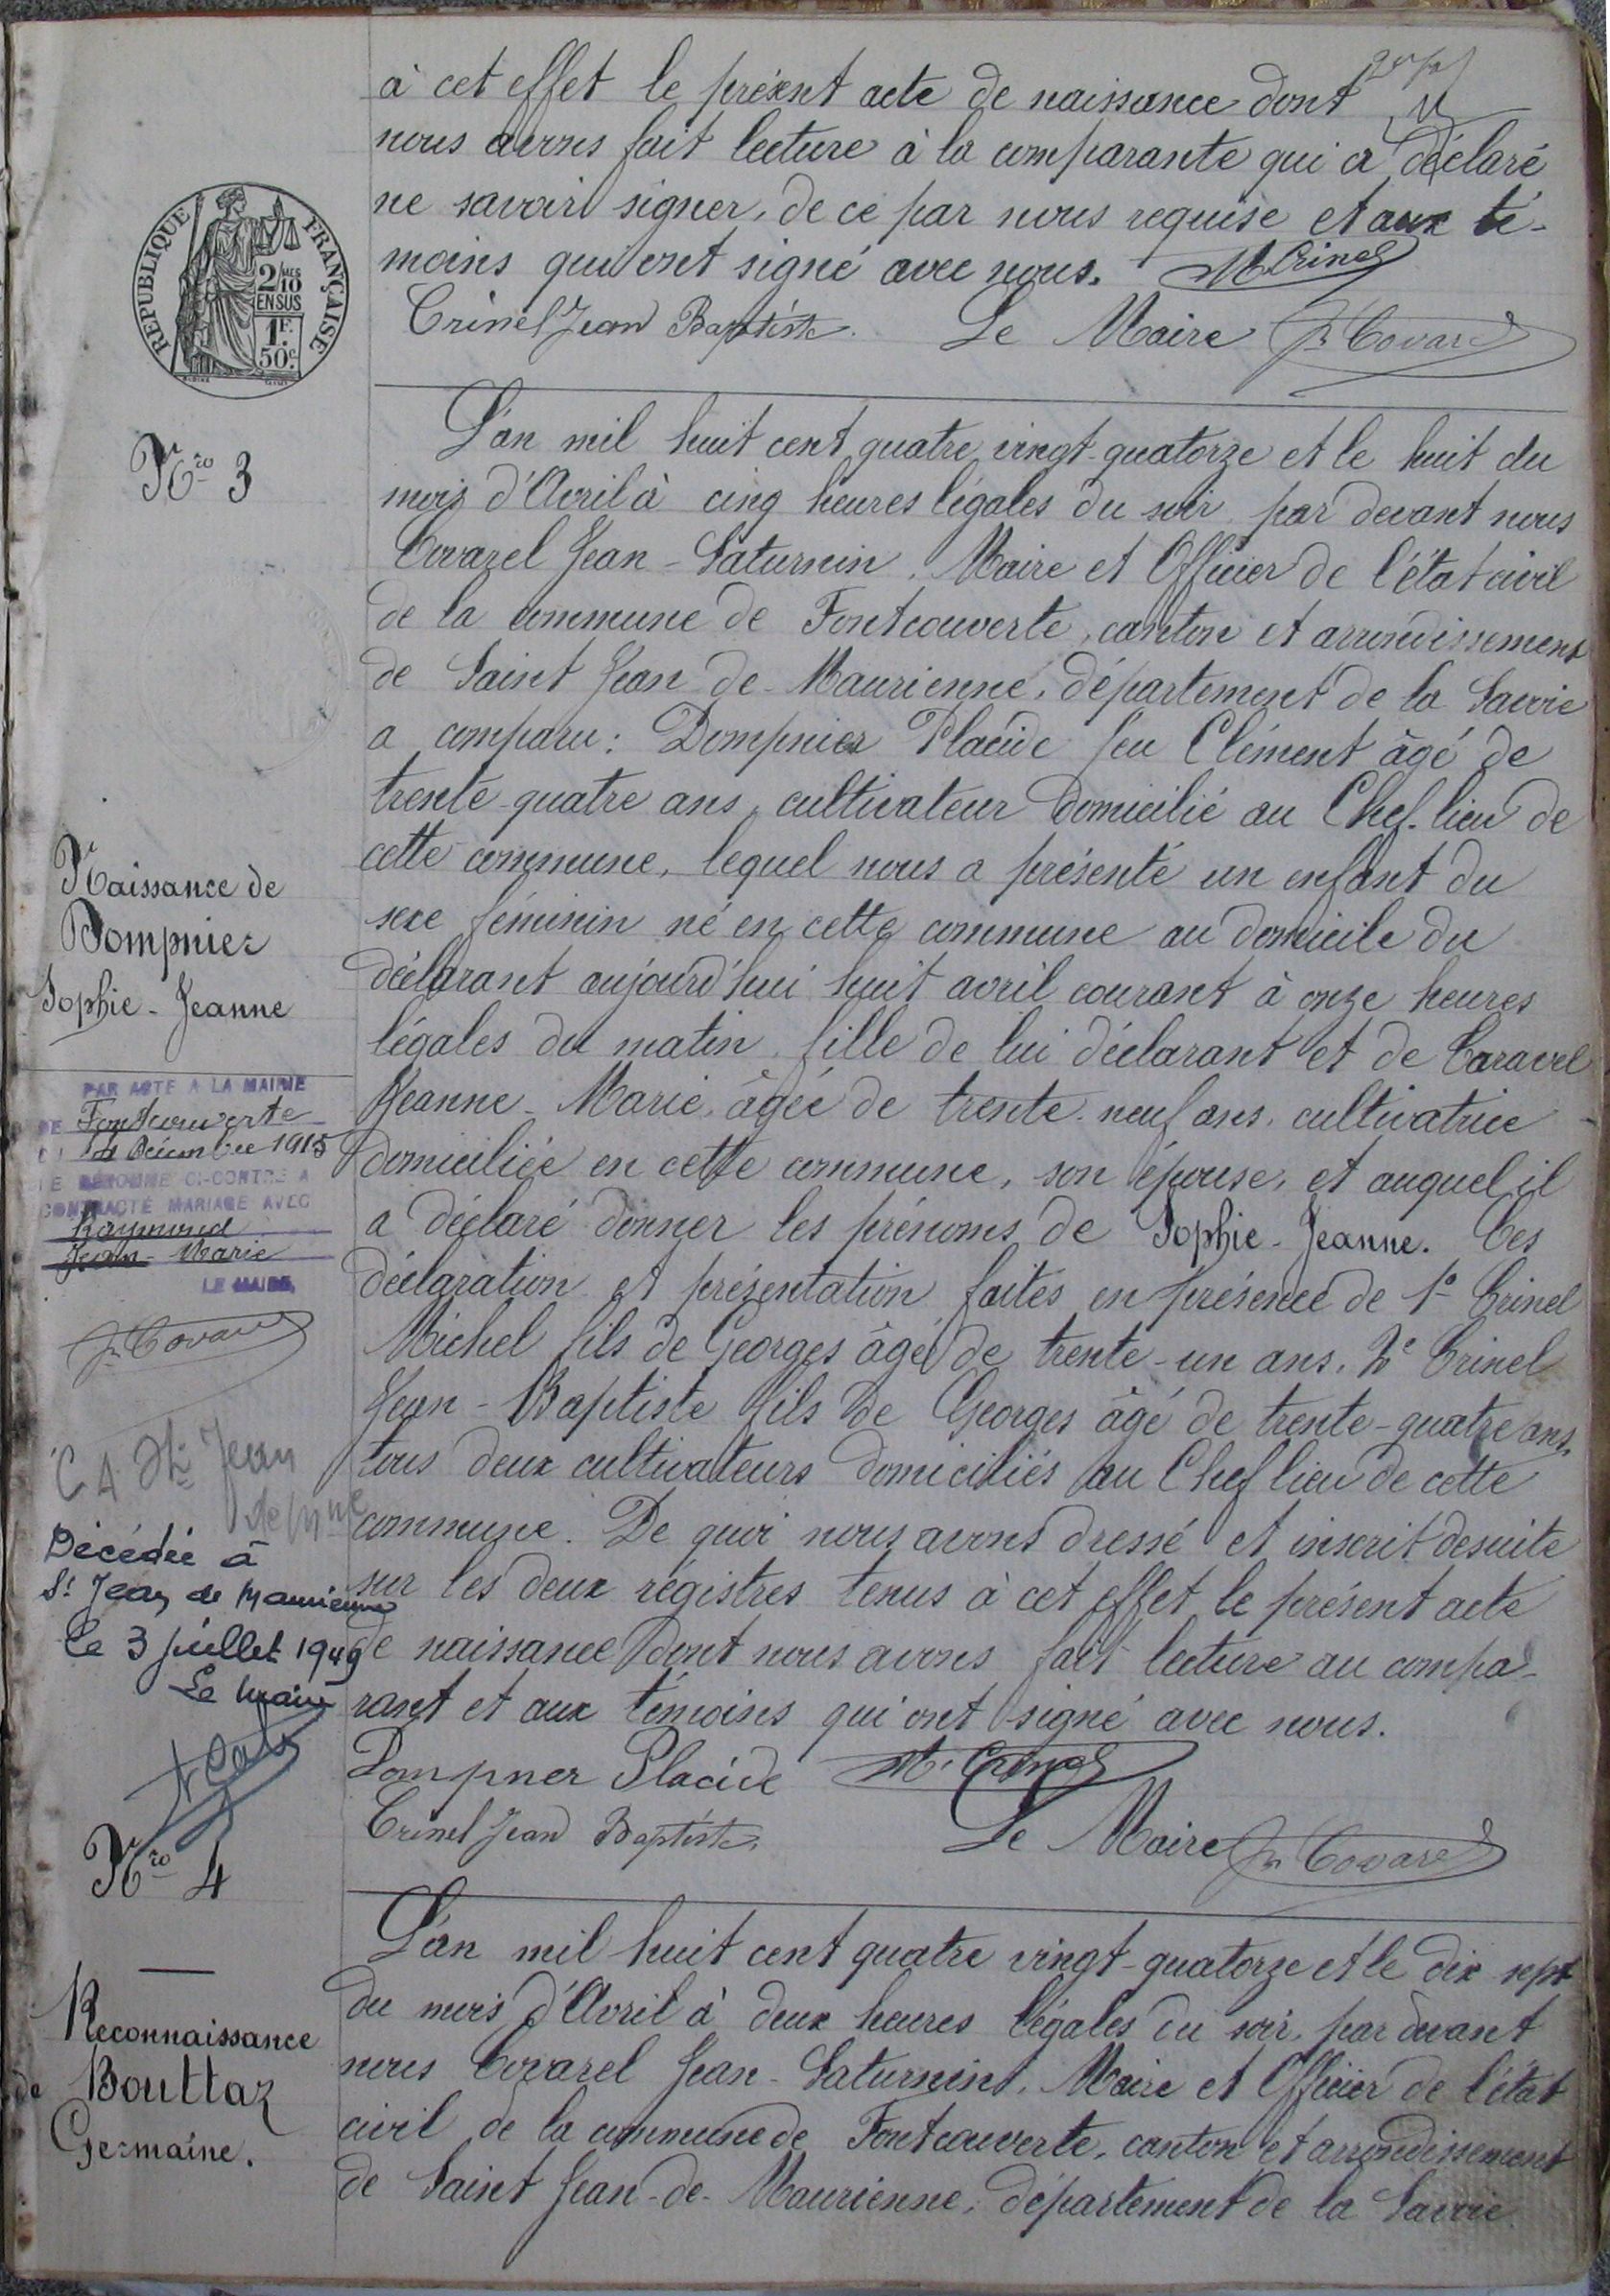 à cet effet le présent acte de naissance dont
nous avons fait lecture à la comparante qui a déclaré
ne savoir signer, de ce par nous requise et aux té-
moins qui ont signé avec nous. M Crinel
Crinel Jean Baptiste. Le Maire Covarel
RÉPUBLIQUE FRANÇAISE
2/10 MES
EN SUS
1F.
50c.
Nro 3
Naissance de
Dompnier
Sophie - Jeanne
L'an mil huit cent quatre vingt-quatorze et le huit du
mois d'Avril à cinq heures légales du soir par devant nous
Covarel Jean - Saturnin, Maire et Officier de l'état civil
de la commune de Fontcouverte, canton et arrondissement
de Saint Jean de Maurienne, département de la Savoie
a comparu : Dompnier Placide feu Clément âgé de
trente-quatre ans, cultivateur domicilié au Chef-lieu de
cette commune, lequel nous a présenté un enfant du
sexe féminin né en cette commune au domicile du
déclarant aujourd'hui huit avril courant à onze heures
légales du matin, fille de lui déclarant et de Caravel
Jeanne - Marie, âgée de trente-neuf ans, cultivatrice
domiciliée en cette commune, son épouse, et auquel il
a déclaré donner les prénoms de Sophie - Jeanne. Ces
déclaration et présentation faites en présence de 1° Crinel
Michel fils de Georges âgé de trente-un ans. 2° Crinel
Jean - Baptiste fils de Georges âgé de trente-quatre ans,
tous deux cultivateurs domiciliés au Chef lieu de cette
commune. De quoi nous avons dressé et inscrit desuite
sur les deux régistres tenus à cet effet le présent acte
de naissance dont nous avons fait lecture au compa-
rant et aux témoins qui ont signé avec nous.
Dompner Placide M. Crinel
Crinel Jean Baptiste. Le Maire Covarel
PAR ACTE A LA MAIRIE
DE Fontcouverte
DU 4 Décembre 1915
LE DENOMMÉ CI-CONTRE A
CONTRACTÉ MARIAGE AVEC
Raymond
Jean - Marie
LE MAIRE,
Covarel
C A St Jean
de Mne
Décédée à
St Jean de Maurienne
le 3 juillet 1949
Le Maire
Nro 4
Reconnaissance
de Bouttaz
Germaine.
L'an mil huit cent quatre vingt-quatorze et le dix sept
du mois d'Avril à deux heures légales du soir, par devant
nous Covarel Jean - Saturnin, Maire et Officier de l'état
civil de la commune de Fontcouverte, canton et arrondissement
de Saint Jean-de-Maurienne, département de la Savoie